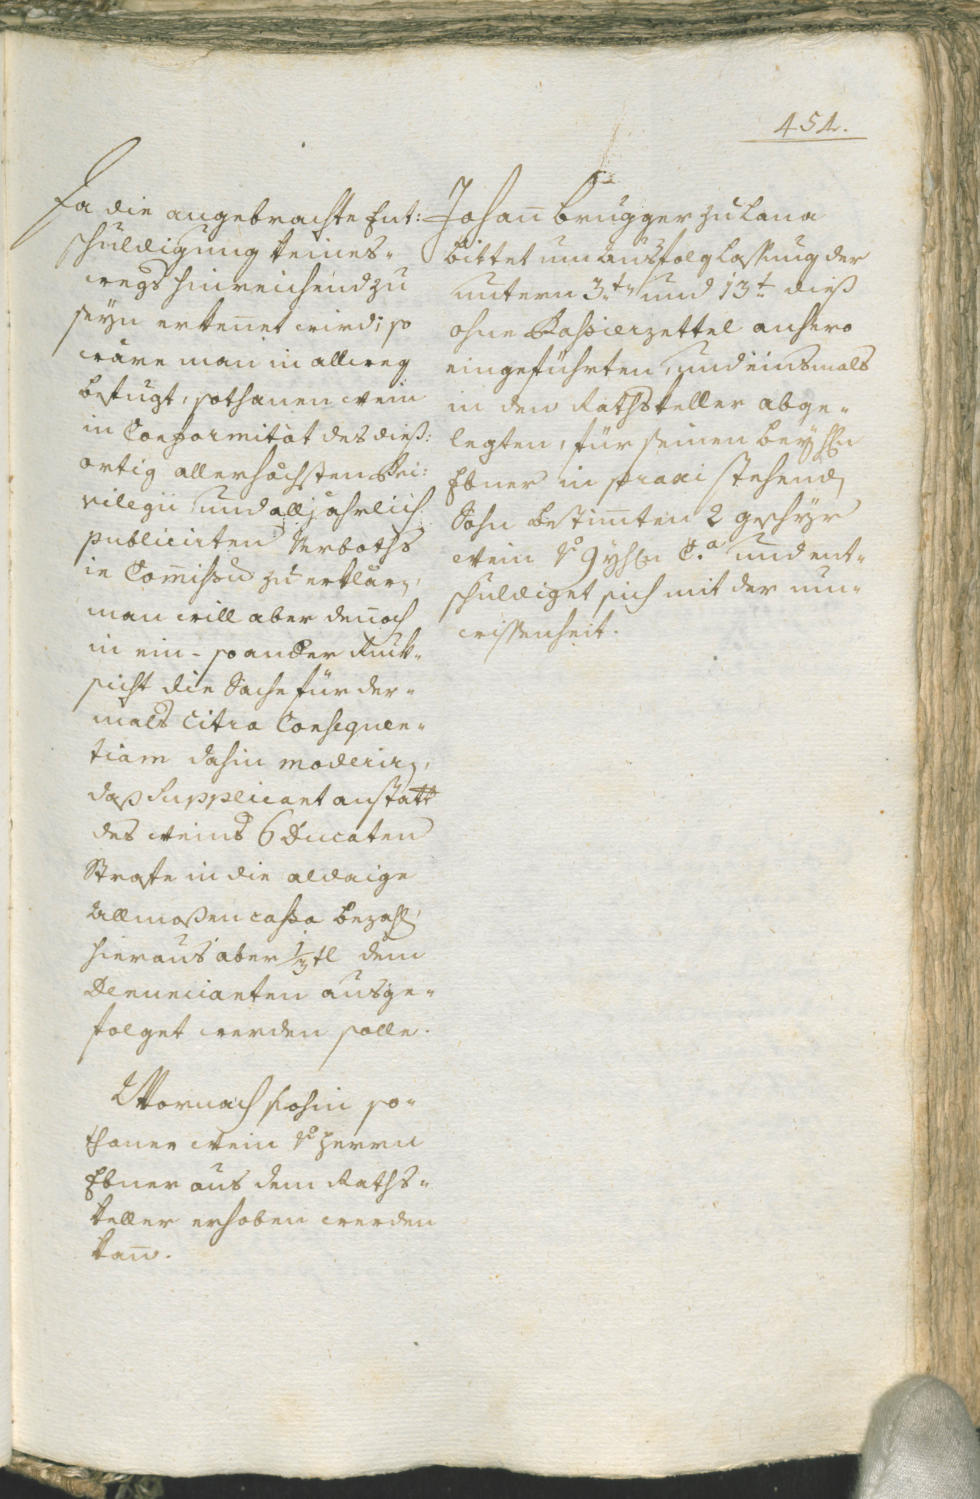 454.
Da die angebrachte Ent:
schuldigung keines-
wegs hinreichend zu
seyn erkeñet wird; so
wäre man in allweg
befugt, sothanen Wein
in Conformität des dieß:
ortig allerhöchsten Pri:
vilegii und alljährlich
publicirten Verboths
in Com̃issu zu erklär,
man will aber deñoch
in ein- so ander Ruck-
sicht die Sache für der-
mals citra Consequen-
tiam dahin moderir,
daß Supplicant anstatt
des Weins 6 Ducaten
Strafe in die aldaige
Allmoßen cassa bezahl,
hieraus aber 1/3tl dem
Denuncianten ausge-
folget werden solle.
Wornach sohin so-
thaner Wein Herrn
Ebner aus dem Raths-
keller erhoben werden
kañ.
Johañ Brugger zu Lana
bittet um Ausfolglassung der
untern 3t. und 13t. dieß
ohne Passierzettel anhero
eingeführten, und einsmals
in den Rathskeller abge-
legten, für seinen bey H
Ebner in praxi stehend
Sohn bestim̃ten 2
Wein 9 und ent-
schuldiget sich mit der un-
wissenheit.